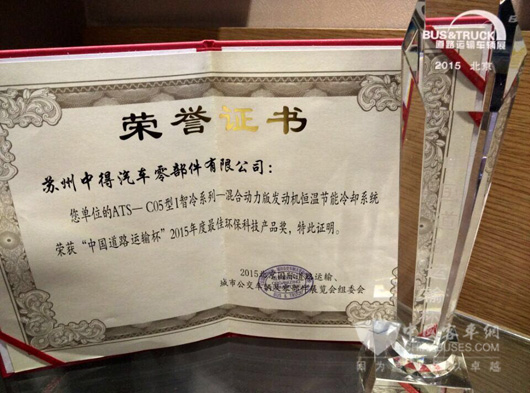 BUS&TRUCK
道路运输车辆展
2015 北京
荣誉证书
苏州中得汽车零部件有限公司：
您单位的ATS— C05型I智冷系列—混合动力版发动机恒温节能冷却系统
荣获“中国道路运输杯”2015年度最佳环保科技产品奖，特此证明。
2015北京国际道路运输、
城市公交车辆及零部件展览会组委会
中国客车网
BUSES.COM